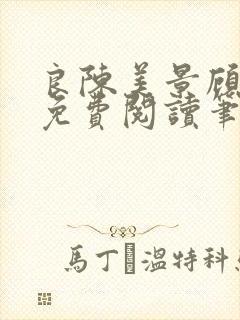 良陳美景顧
免費閱讀筆
馬丁·溫特科